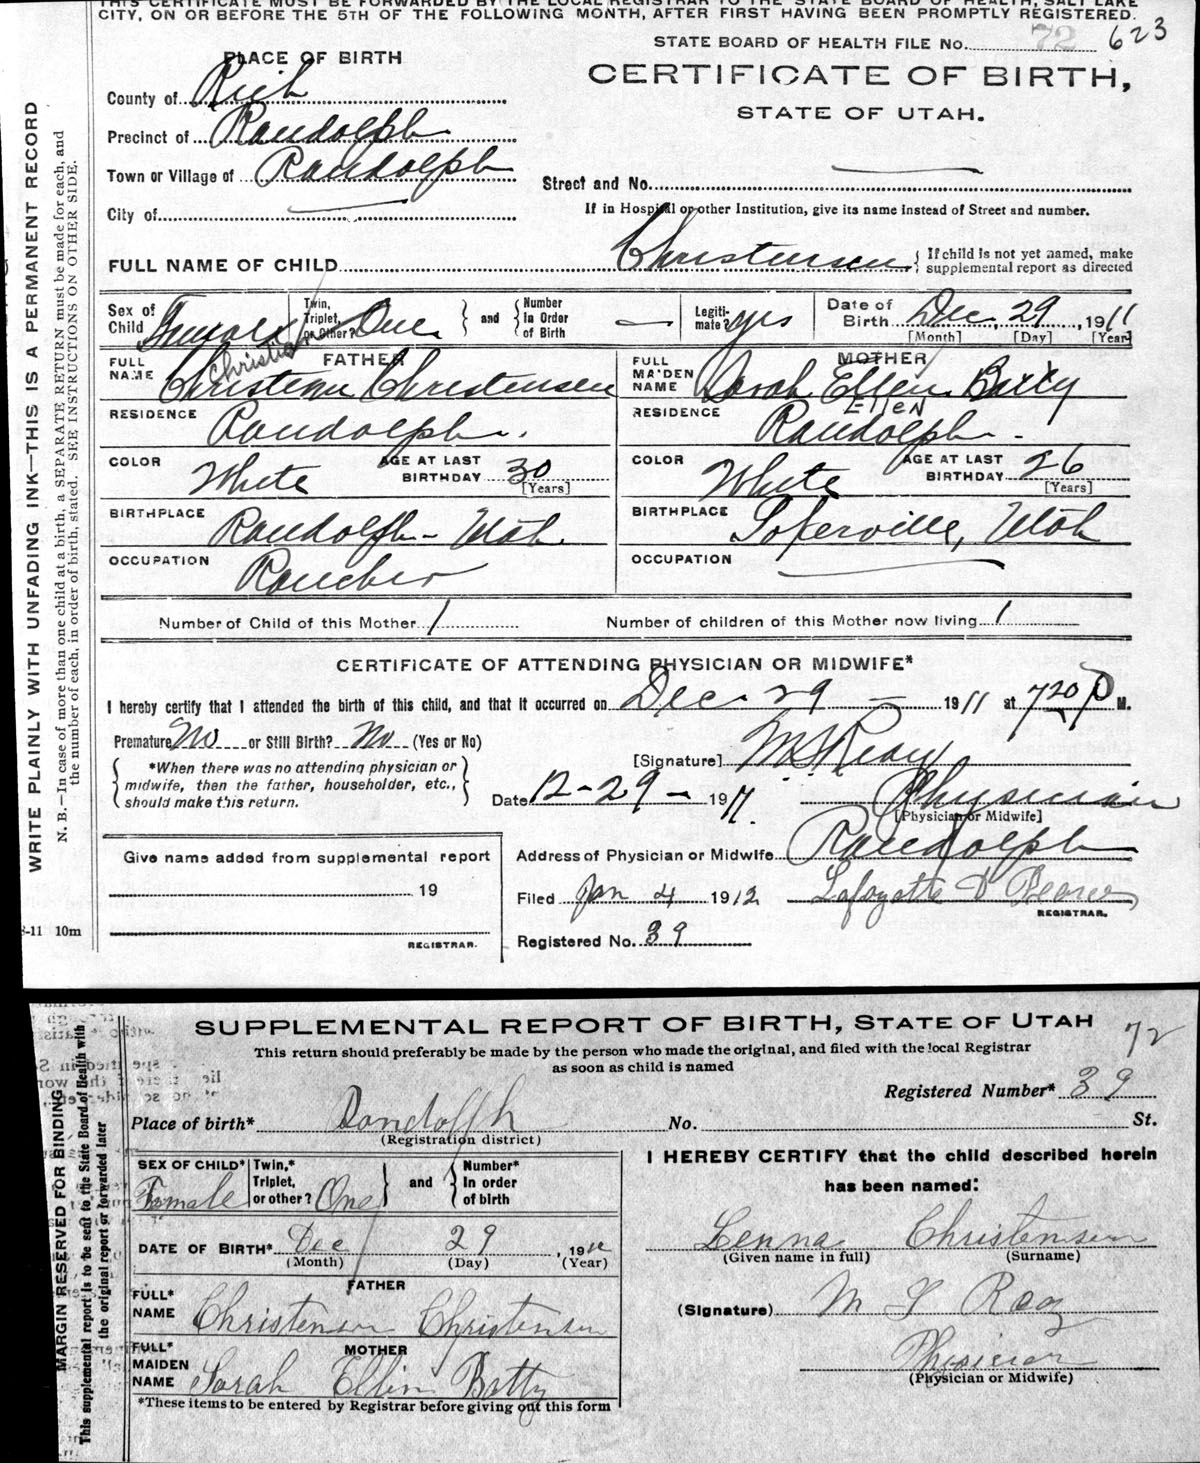 THIS CERTIFICATE MUST BE FORWARDED BY THE LOCAL REGISTRAR TO THE STATE BOARD OF HEALTH, SALT LAKE
CITY, ON OR BEFORE THE 5TH OF THE FOLLOWING MONTH, AFTER FIRST HAVING BEEN PROMPTLY REGISTERED.
STATE BOARD OF HEALTH FILE No. 72 623
PLACE OF BIRTH
CERTIFICATE OF BIRTH,
STATE OF UTAH.
County of Rich
Precinct of Randolph
Town or Village of Randolph
Street and No.
City of
If in Hospital or other Institution, give its name instead of Street and number.
FULL NAME OF CHILD Christensen { If child is not yet named, make supplemental report as directed
Sex of Child Female Twin, Triplet, or Other? One } and { Number In Order of Birth — Legitimate? yes Date of Birth Dec. 29, 1911
[Month] [Day] [Year]
FATHER
FULL NAME Christian Christensen Christensen
RESIDENCE Randolph.
COLOR White AGE AT LAST BIRTHDAY 30 [Years]
BIRTHPLACE Randolph - Utah.
OCCUPATION Rancher
MOTHER
FULL MAIDEN NAME Sarah Ellen Batty
Ellen
RESIDENCE Randolph -
COLOR White AGE AT LAST BIRTHDAY 26 [Years]
BIRTHPLACE Tokerville, Utah
OCCUPATION
Number of Child of this Mother 1 Number of children of this Mother now living 1
CERTIFICATE OF ATTENDING PHYSICIAN OR MIDWIFE*
I hereby certify that I attended the birth of this child, and that it occurred on Dec - 29 - 1911 at 7 20 P M.
Premature No or Still Birth? No (Yes or No)
{ *When there was no attending physician or midwife, then the father, householder, etc., should make this return. }
[Signature] M S Reay
Date 12-29- 1911. Physician
[Physician or Midwife]
Give name added from supplemental report
19
REGISTRAR.
Address of Physician or Midwife Randolph
Filed Jan 4 1912 Lafayette D
REGISTRAR.
Registered No. 39
8-11 10m
WRITE PLAINLY WITH UNFADING INK—THIS IS A PERMANENT RECORD
N. B.—In case of more than one child at a birth, a SEPARATE RETURN must be made for each, and
the number of each, in order of birth, stated. SEE INSTRUCTIONS ON OTHER SIDE.
SUPPLEMENTAL REPORT OF BIRTH, STATE OF UTAH 72
This return should preferably be made by the person who made the original, and filed with the local Registrar
as soon as child is named
Registered Number* 39
Place of birth* Randolph No. St.
(Registration district)
SEX OF CHILD* Female Twin,* Triplet, or other? One } and { Number* In order of birth
DATE OF BIRTH* Dec 29, 19
(Month) (Day) (Year)
FATHER
FULL* NAME Christensen Christensen
MOTHER
FULL* MAIDEN NAME Sarah Ellin Batty
*These items to be entered by Registrar before giving out this form
I HEREBY CERTIFY that the child described herein
has been named:
Lenna Christensen
(Given name in full) (Surname)
(Signature) M S Reay
Physician
(Physician or Midwife)
MARGIN RESERVED FOR BINDING
This supplemental report is to be sent to the State Board of Health with
the original report or forwarded later